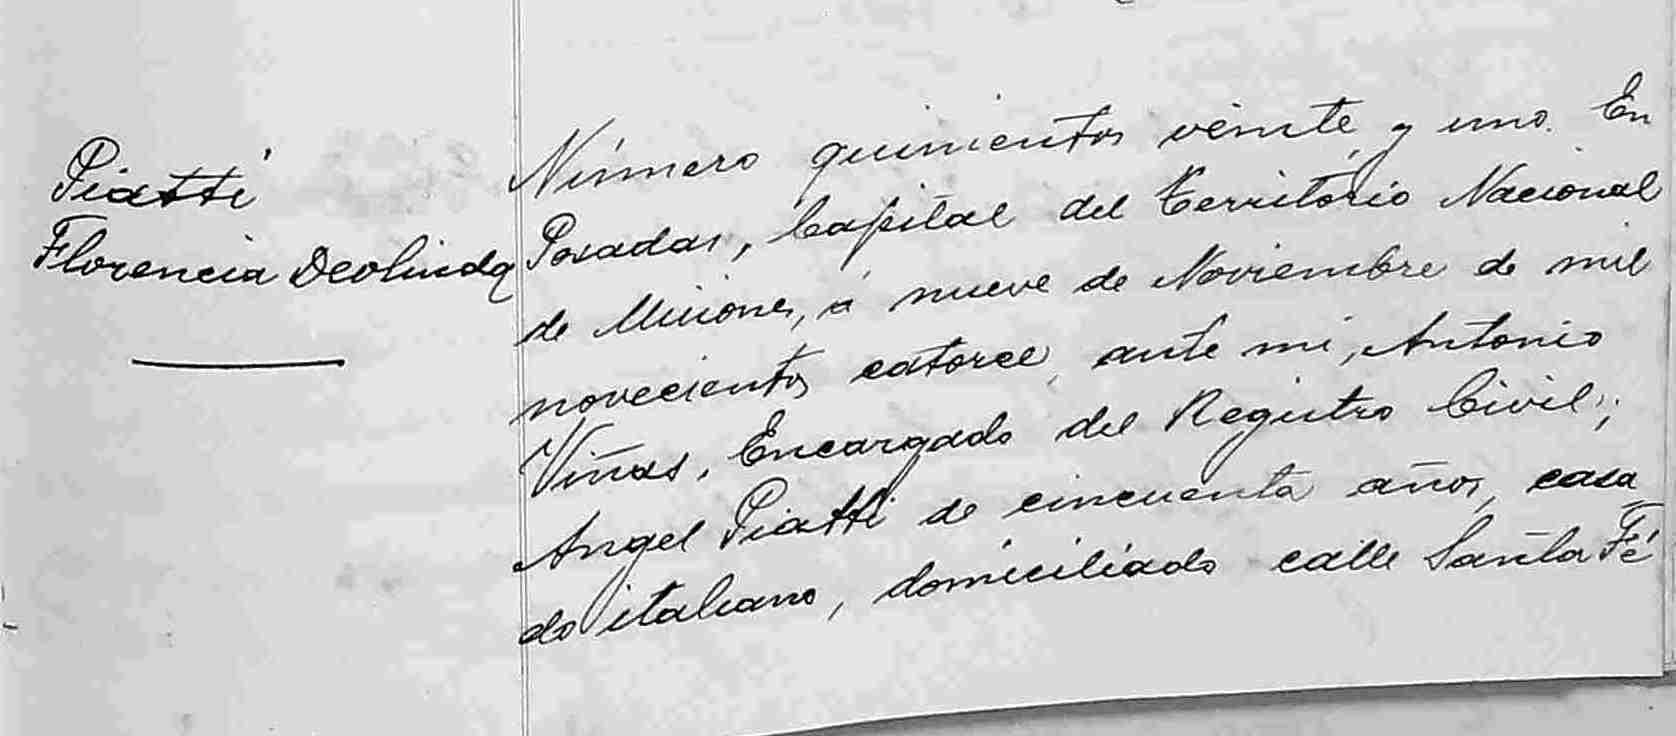 Piatti
Florencia Deolinda
Número quinientos veinte y uno. En
Posadas, Capital del Territorio Nacional
de Misiones, á nueve de Noviembre de mil
novecientos catorce, ante mi, Antonio
Viñas, Encargado del Registro Civil;
Angel Piatti de cincuenta años, casa
do italiano, domiciliado calle Santa Fé